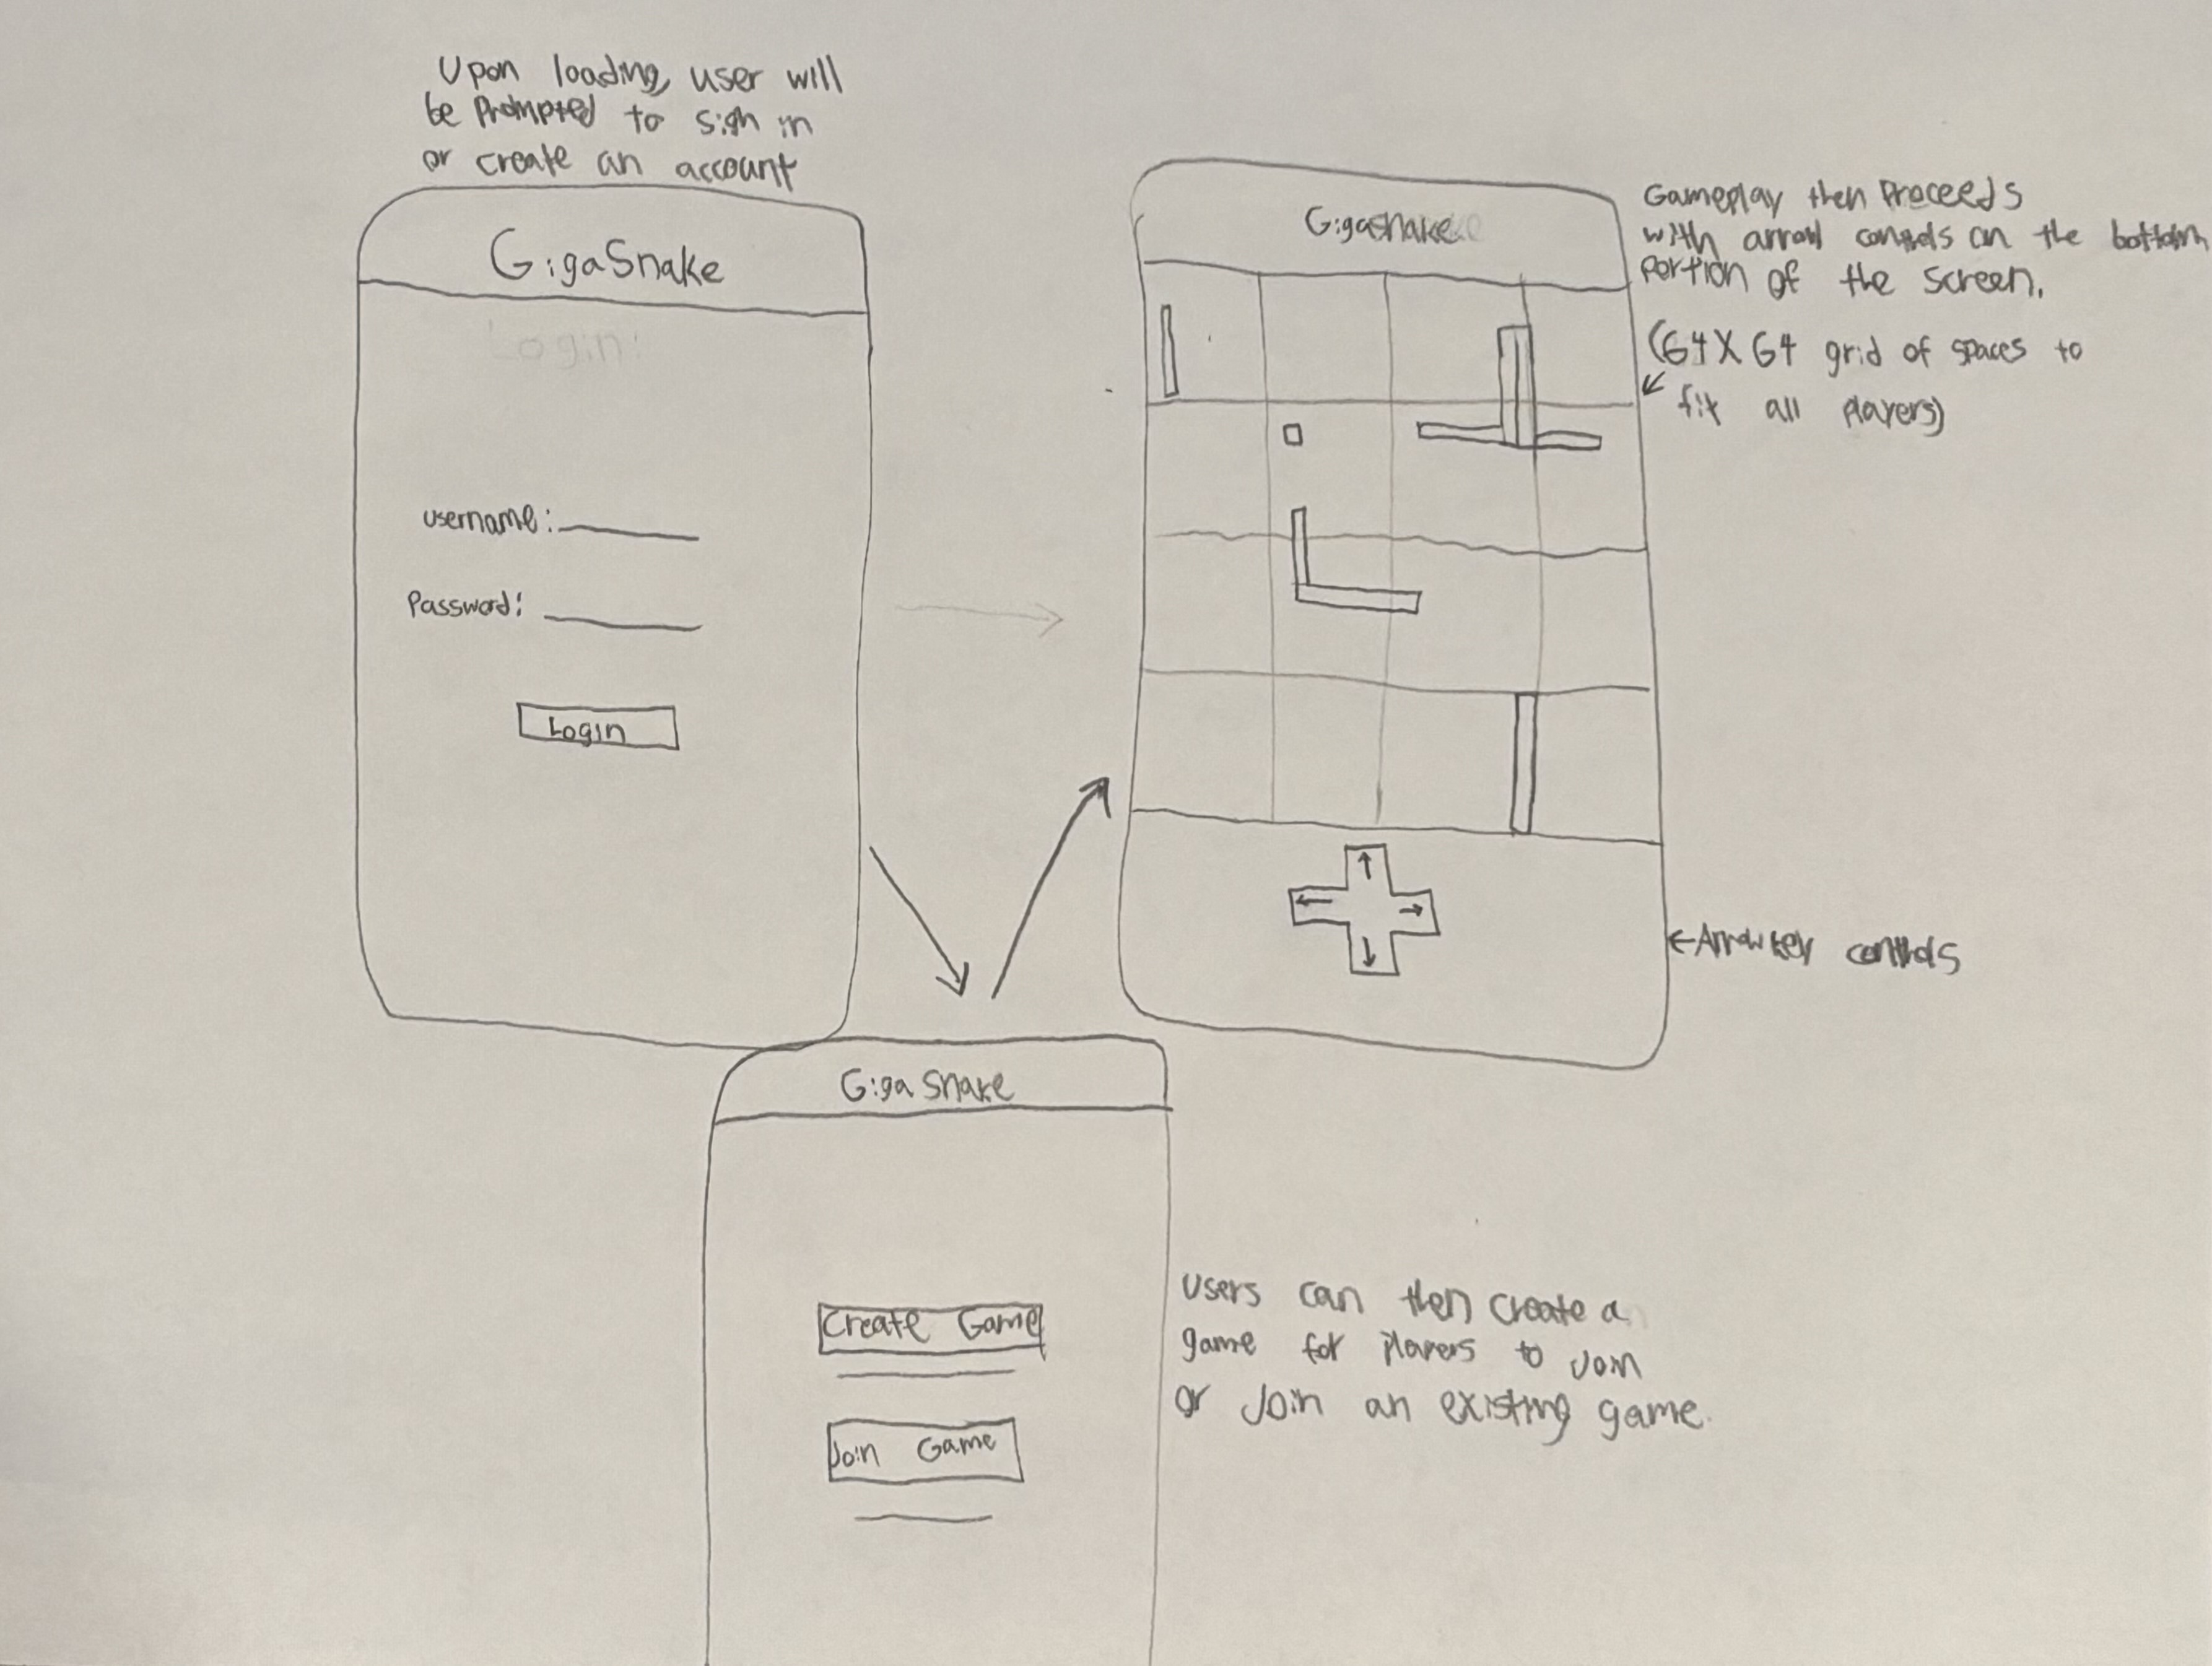 Upon loading, user will
be Prompted to sign in
or create an account
GigaSnake
Login:
username:
Password:
Login
GigaSnake
Gameplay then Proceeds
with arrow controls on the bottom
Portion of the screen.
(64X64 grid of spaces to
fit all players)
↑
← →
↓
←Arrow key controls
Giga Snake
Create Game
Join Game
Users can then create a
game for players to Join
or Join an existing game.